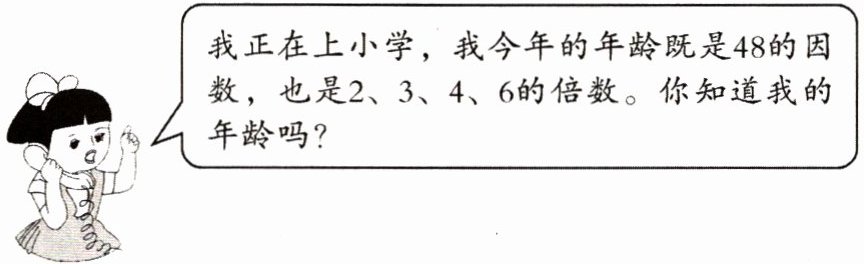 我正在上小学，我今年的年龄既是48的因
数，也是2、3、4、6的倍数。你知道我的
年龄吗？